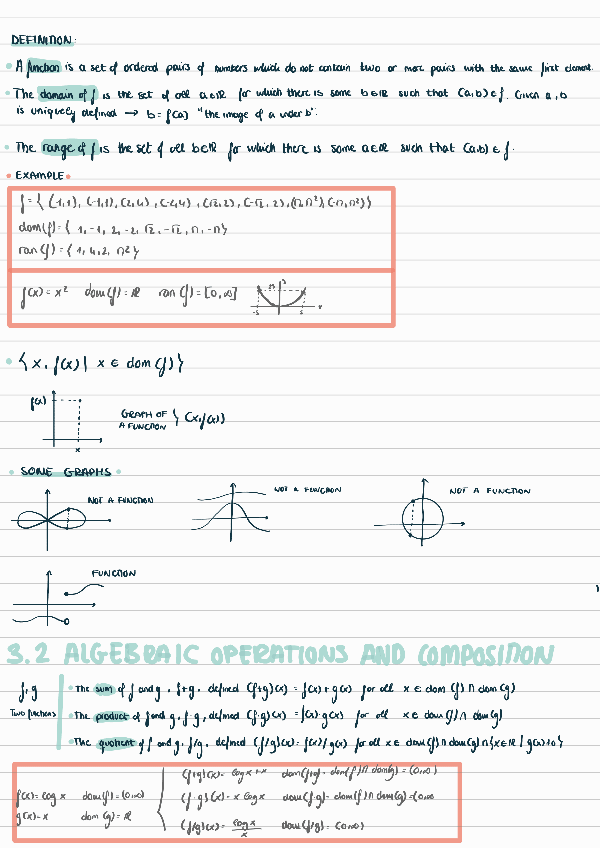 DEFINITION:
• A function is a set of ordered pairs of numbers which do not contain two or more pairs with the same first element.
• The domain of f is the set of all a∈ℝ for which there is some b∈ℝ such that (a,b) ∈ f. Given a, b
is uniquely defined → b = f(a) "the image of a under b".
• The range of f is the set of all b∈ℝ for which there is some a∈ℝ such that (a,b) ∈ f.
• EXAMPLE •
f = { (1,1), (-1,1), (2,4), (-2,4), (√2,2), (-√2, 2), (π,π²), (-π,π²) }
dom(f) = { 1, -1, 2, -2, √2, -√2, π, -π }
ran(f) = { 1, 4, 2, π² }
f(x) = x² dom(f) = ℝ ran(f) = [0,∞]
-5 5 x
• { x, f(x) | x ∈ dom(f) }
f(x)
x
GRAPH OF
A FUNCTION } (x, f(x))
• SOME GRAPHS •
NOT A FUNCTION
NOT A FUNCTION
NOT A FUNCTION
FUNCTION
3.2 ALGEBRAIC OPERATIONS AND COMPOSITION
f, g
Two functions
• The sum of f and g, f+g, defined (f+g)(x) = f(x) + g(x) for all x ∈ dom(f) ∩ dom(g)
• The product of f and g, f·g, defined (f·g)(x) = f(x)·g(x) for all x ∈ dom(f) ∩ dom(g)
• The quotient of f and g, f/g, defined (f/g)(x) = f(x)/g(x) for all x ∈ dom(f) ∩ dom(g) ∩ {x∈ℝ | g(x)≠0}
f(x) = log x dom(f) = (0,∞)
g(x) = x dom(g) = ℝ
(f+g)(x) = log x + x dom(f+g) = dom(f) ∩ dom(g) = (0,∞)
(f·g)(x) = x log x dom(f·g) = dom(f) ∩ dom(g) = (0,∞)
(f/g)(x) = log x / x dom(f/g) = (0,∞)